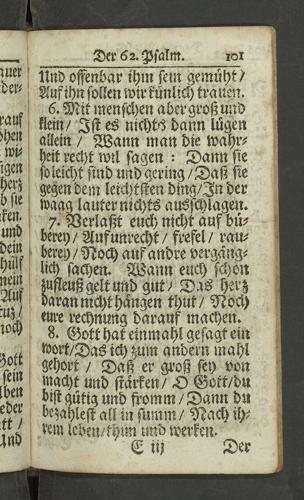 Der 62. Psalm. 101
Und offenbar ihm sein gemüht /
Auf ihn sollen wir künlich trauen.
6. Mit menschen aber groß und
klein / Ist es nichts dann lügen
allein / Wann man die wahr-
heit recht wil sagen : Dann sie
so leicht sind und gering / Daß sie
gegen dem leichtsten ding / In der
waag lauter nichts ausschlagen.
7. Verlaßt euch nicht auf bü-
berey / Auf unrecht / frefel / rau-
berey / Noch auf andre vergäng-
lich sachen. Wann euch schon
zufleußt gelt und gut / Das herz
daran nicht hängen thut / Noch
eure rechnung darauf machen.
8. Gott hat einmahl gesagt ein
wort / Das ich zum andern mahl
gehort / Daß er groß sey von
macht und stärken / O Gott / du
bist gütig und fromm / Dann du
bezahlest all in summ / Nach ih-
rem leben / thun und werken.
E iij Der
auer
der-
rauf
öhen
wi-
igen
herz
b sie
ken.
und
dein
hülf
mein
Auf
tuz /
noch
Gott
sein
lben
eder
tt /
Und